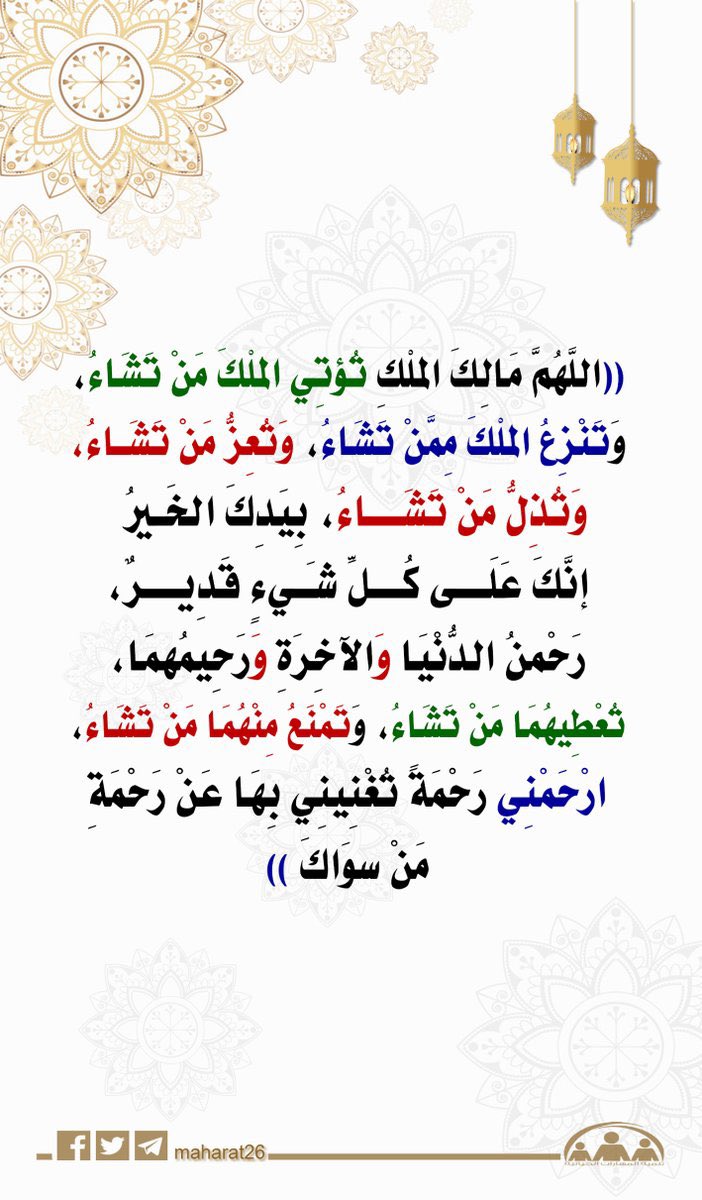 ((اللَّهُمَّ مَالِكَ الملْكِ تُؤتِي الملْكَ مَنْ تَشَاءُ،
وَتَنْزِعُ الملْكَ مِمَّنْ تَشَاءُ، وَتُعِزُّ مَنْ تَشَـاءُ،
وَتُذِلُّ مَنْ تَشَـــاءُ، بِيَدِكَ الخَـيرُ
إنَّكَ عَلَــى كُــلِّ شَـيءٍ قَـدِيــرٌ،
رَحْمنُ الدُّنْيَا وَالآخِرَةِ وَرَحِيمُهمَا،
تُعْطِيهُمَا مَنْ تَشَاءُ، وَتَمْنَعُ مِنْهُمَا مَنْ تَشَاءُ،
ارْحَمْنِي رَحْمَةً تُغْنِينِي بِهَا عَنْ رَحْمَةِ
مَنْ سوَاكَ ))
maharat26
تنمية المهارات الحياتية